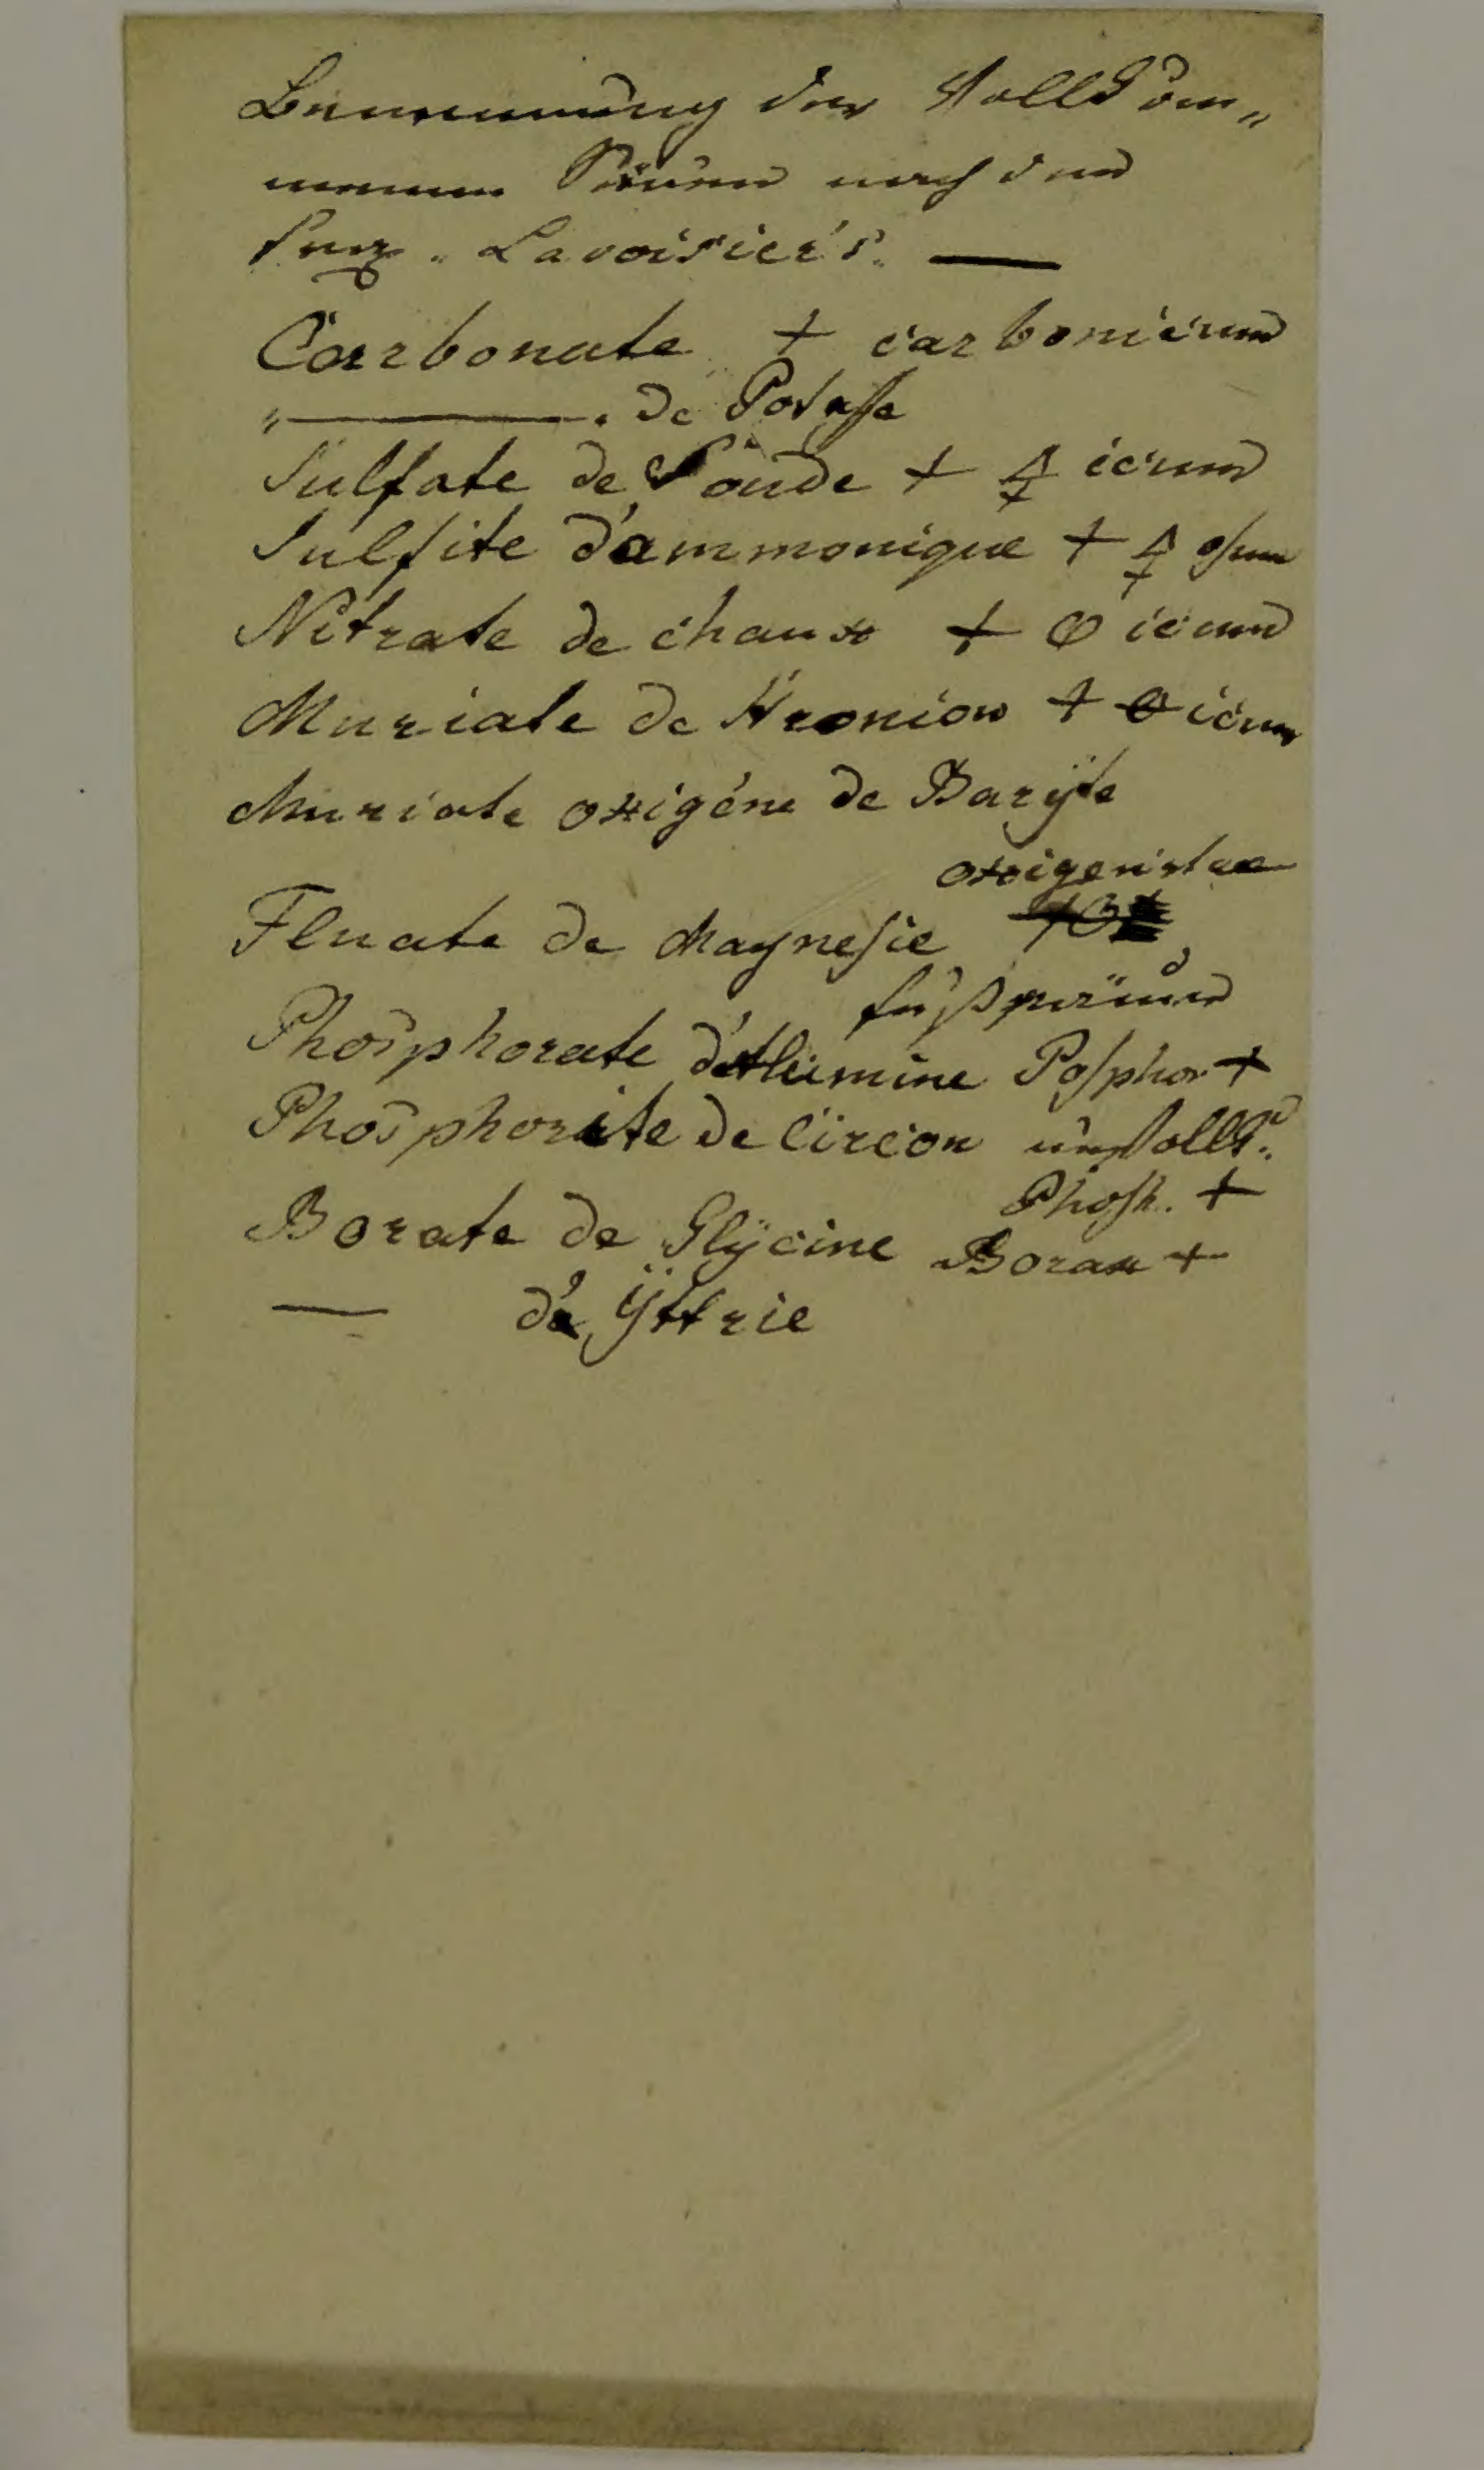 Benennung der Vollkom„
menen Säuren nach dem
Lavoisier's. —
Carbonate + carbonicum
„———. de Potasse
Sulfate de Soude + 🜍 icum
Sulfite d'ammonique + 🜍 osum
Nitrate de chaux + 🜕 icum
Muriate de Stronion + 🜔 icum
Muriate oxigéne de Barÿte
oxigenirtae
Fluate de Magnesie
Phosphorate d'Alumine Posphor +
Phosphorite de Circon unvollk:
Phosh. +
Borate de Glÿcine Borax +
— d'Ÿttrie